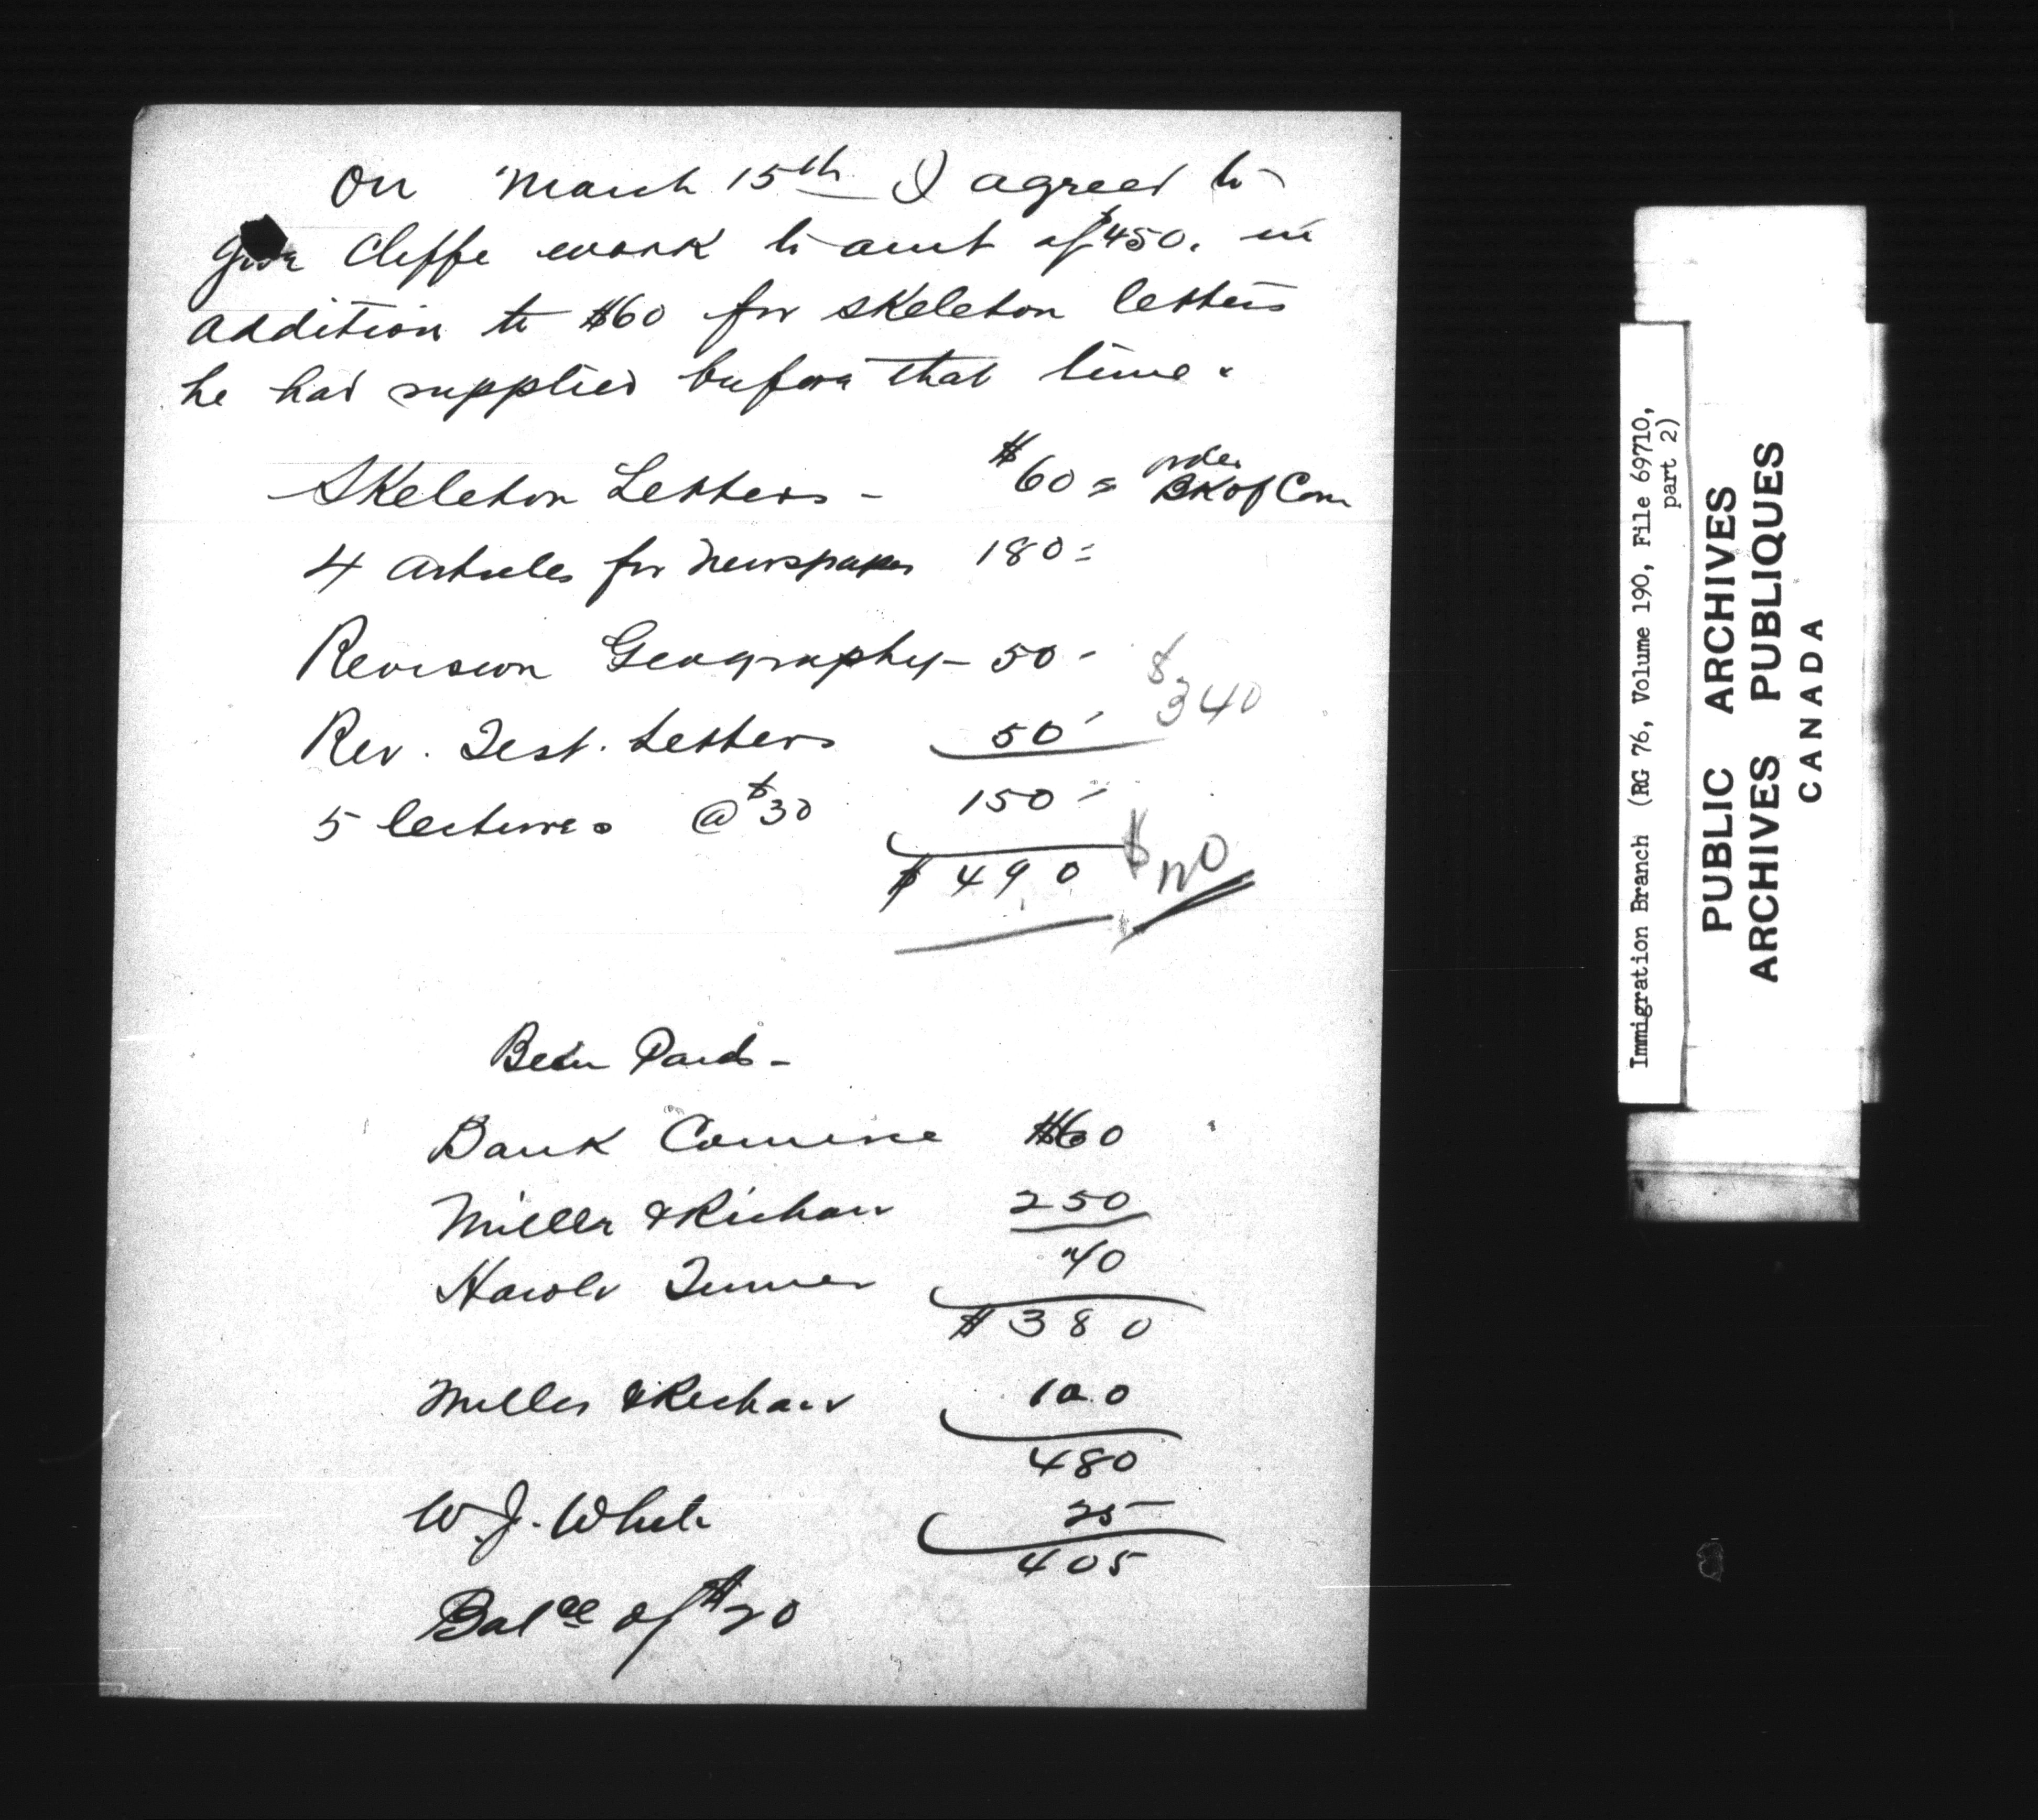 On March 15th I agreed to
give Cliffe work to amt of $450. in
addition to $60 for skeleton letters
he had supplied before that time.
Skeleton Letters - $60 = order Bk of Com
4 Articles for Newspaper 180 =
Revision Geography - 50 -
$340
Rev. Test. Letters 50
5 lectures @ $30 150 =
$490
Been Paid -
Bank Commerce $60
Miller & Richard 250
Harold Turner
$380
Miller & Richard 100
480
W. J. White 25
405
Balce of $20
Immigration Branch (RG 76, Volume 190, File 69710,
part 2)
PUBLIC ARCHIVES
ARCHIVES PUBLIQUES
CANADA